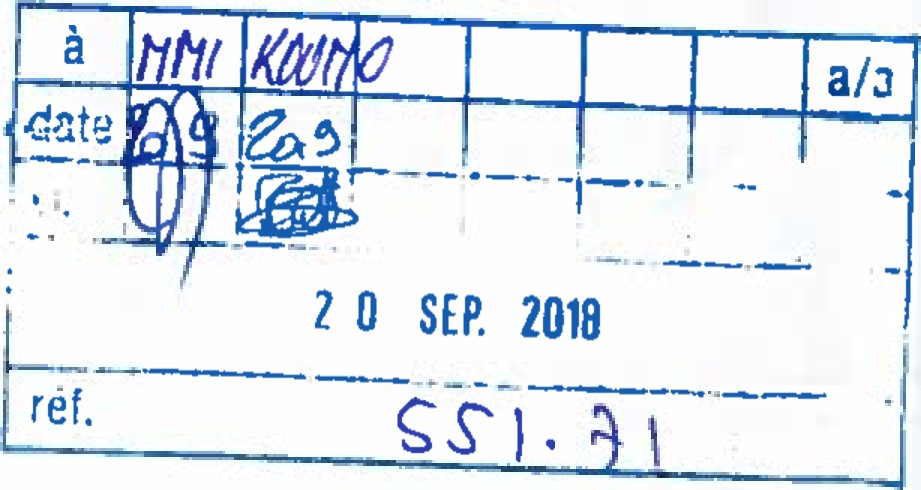 à MMI KOUMO a/a
date 20.9 20.9
20 SEP. 2018
réf. 551.71